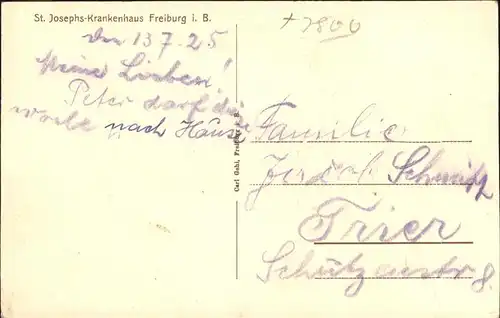 St. Josephs-Krankenhaus Freiburg i. B.
+ 7806
den 13 7. 25
Meine Lieben!
Peter darf diese
woche nach Hause
Carl Guhl, Freiburg i. B.
Familie
Josef Schmitz
Trier
Schützenstr 8.